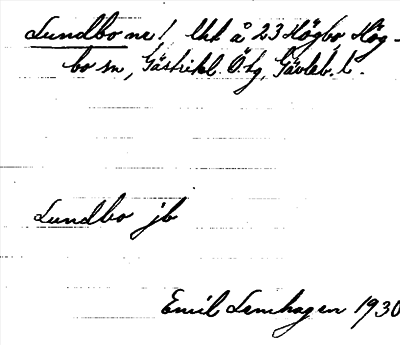 Lundbo ne! lht å 23 Högbo Hög-
bo sn, Gästrikl. Ö. tg, Gävleb. l.
Lundbo jb
Emil Lenhagen 1930